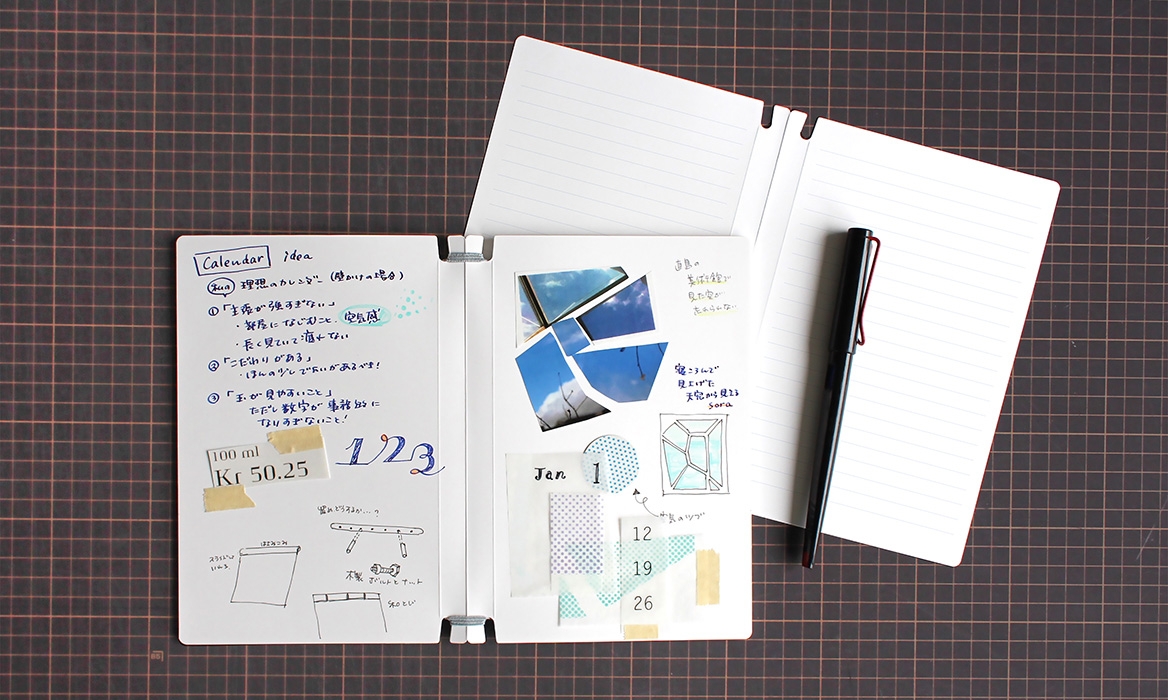 Calendar idea
理想のカレンダー (壁かけの場合)
① 「主張が強すぎない」
・部屋になじむこと 空気感
・長く見ていて疲れない
② 「こだわりがある」
・ほんの少しで良いがあるべき!
③ 「玉が見やすいこと」
ただし数字が事務的に
なりすぎないこと!
100 ml
Kr 50.25
123
留めどうするか...?
はさみこみ
スライドで
いれる
木製 ボルトとナット
和とじ
直島の
美術館で
見た空が
忘れられない
寝ころんで
見上げた
天窓から見える
sora
Jan 1
空気のツブ
12
19
26